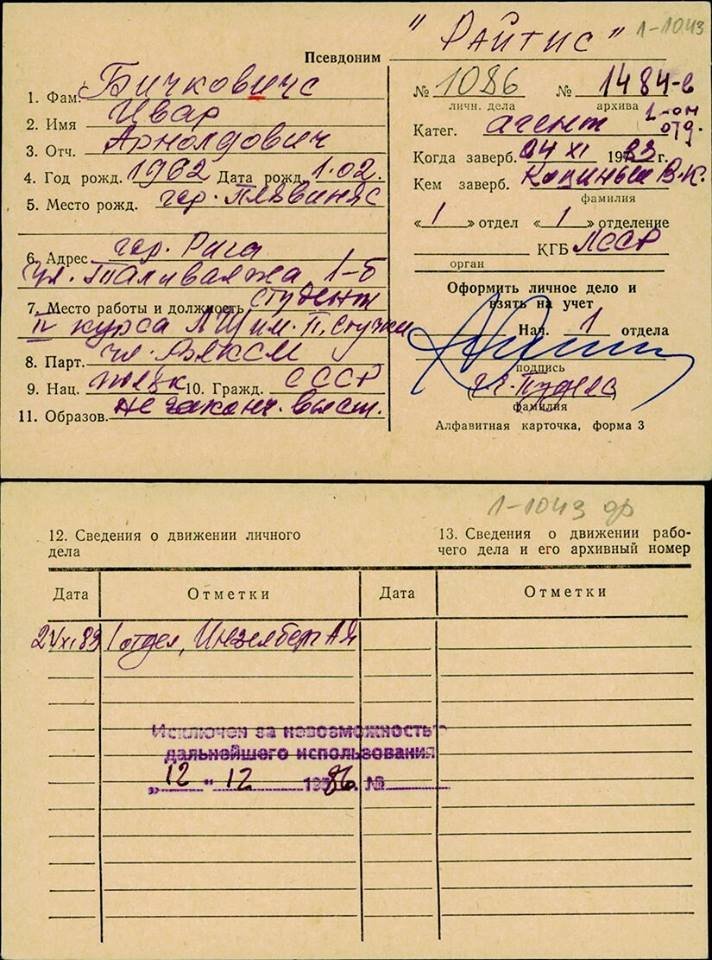 "Райтис" 1-1043
Псевдоним
1. Фам. Бичковичс
2. Имя Ивар
3. Отч. Арнолдович
4. Год рожд. 1962 Дата рожд. 1.02.
5. Место рожд. гор. Плявиняс
6. Адрес гор. Рига
ул. Таливалжа 1-б
7. Место работы и должность студент
IV курса ЛГУ им. П. Стучки
8. Парт. чл. ВЛКСМ
9. Нац. 10. Гражд. СССР
11. Образов. не законч. высш.
№ 1086 № 1484-в
личн. дела архива
Катег. агент 1-ом отд.
Когда заверб. 04 XI 1983 г.
Кем заверб. В.К.
фамилия
«1» отдел «1» отделение
КГБ ЛССР
орган
Оформить личное дело и
взять на учет
Нач. 1 отдела
подпись
фамилия
Алфавитная карточка, форма 3
1-1043 др
12. Сведения о движении личного
дела
13. Сведения о движении рабо-
чего дела и его архивный номер
Дата Отметки Дата Отметки
1 отдел, Инзелберг А Я
Исключен за невозможностью
дальнейшего использования
„12" 12 1986. №